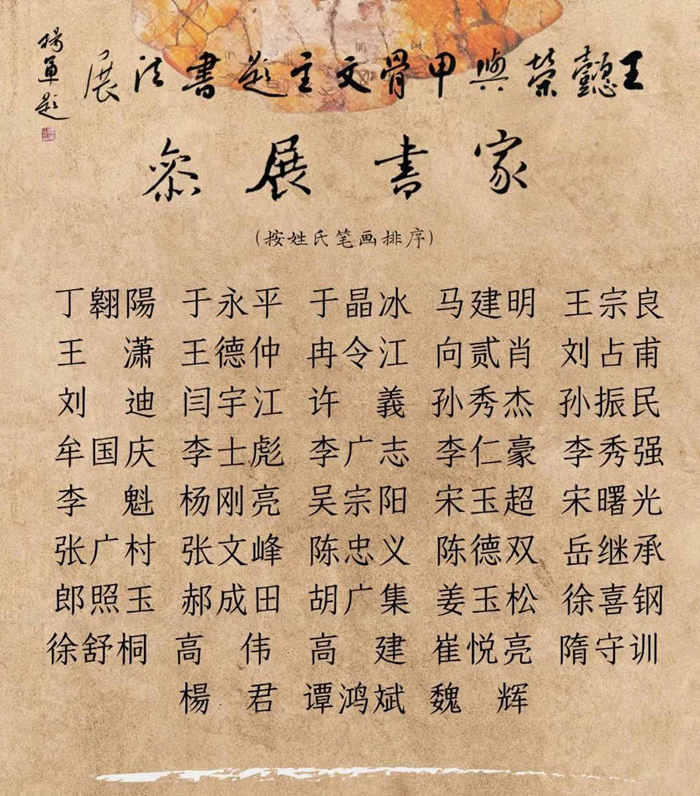 王懿榮與甲骨文主題書法展
楊軍题
參展書家
(按姓氏笔画排序)
丁翱陽 于永平 于晶冰 马建明 王宗良
王潇 王德仲 冉令江 向贰肖 刘占甫
刘迪 闫宇江 许義 孙秀杰 孙振民
牟国庆 李士彪 李广志 李仁豪 李秀强
李魁 杨刚亮 吴宗阳 宋玉超 宋曙光
张广村 张文峰 陈忠义 陈德双 岳继承
郎照玉 郝成田 胡广集 姜玉松 徐喜钢
徐舒桐 高伟 高建 崔悦亮 隋守训
楊君 谭鸿斌 魏辉